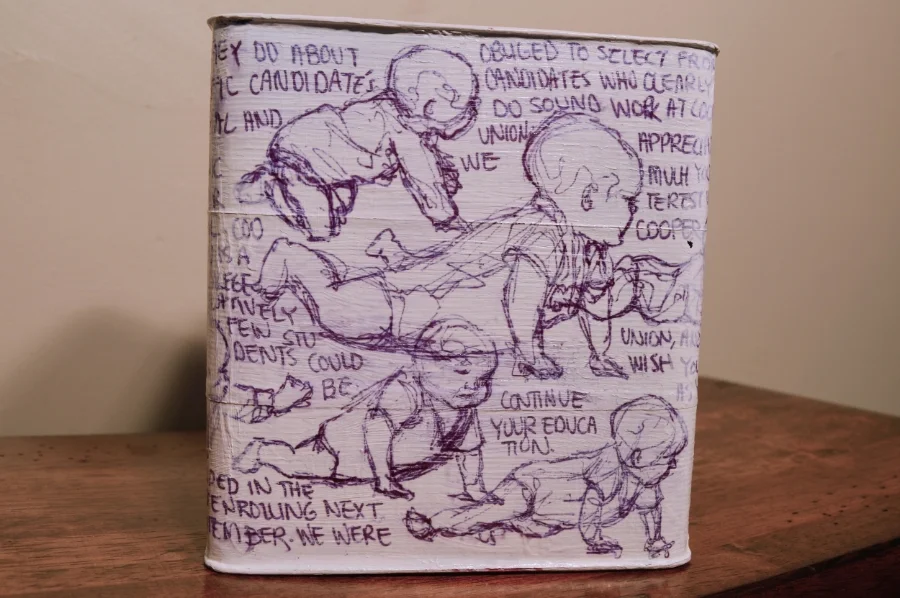 EY DO ABOUT
IC CANDIDATE'S
AL AND
C
R.
COO
IS A
LEGE
ATIVELY
FEW STU
DENTS COULD
BE
PED IN THE
ENROLLING NEXT
TEMBER. WE WERE
OBLIGED TO SELECT FRO
CANDIDATES WHO CLEARLY
DO SOUND WORK AT CO
UNION.
WE
APPRECI
MUCH YO
TEREST
COOPER
UNION, AN
WISH YO
AS
CONTINUE
YOUR EDUCA
TION.